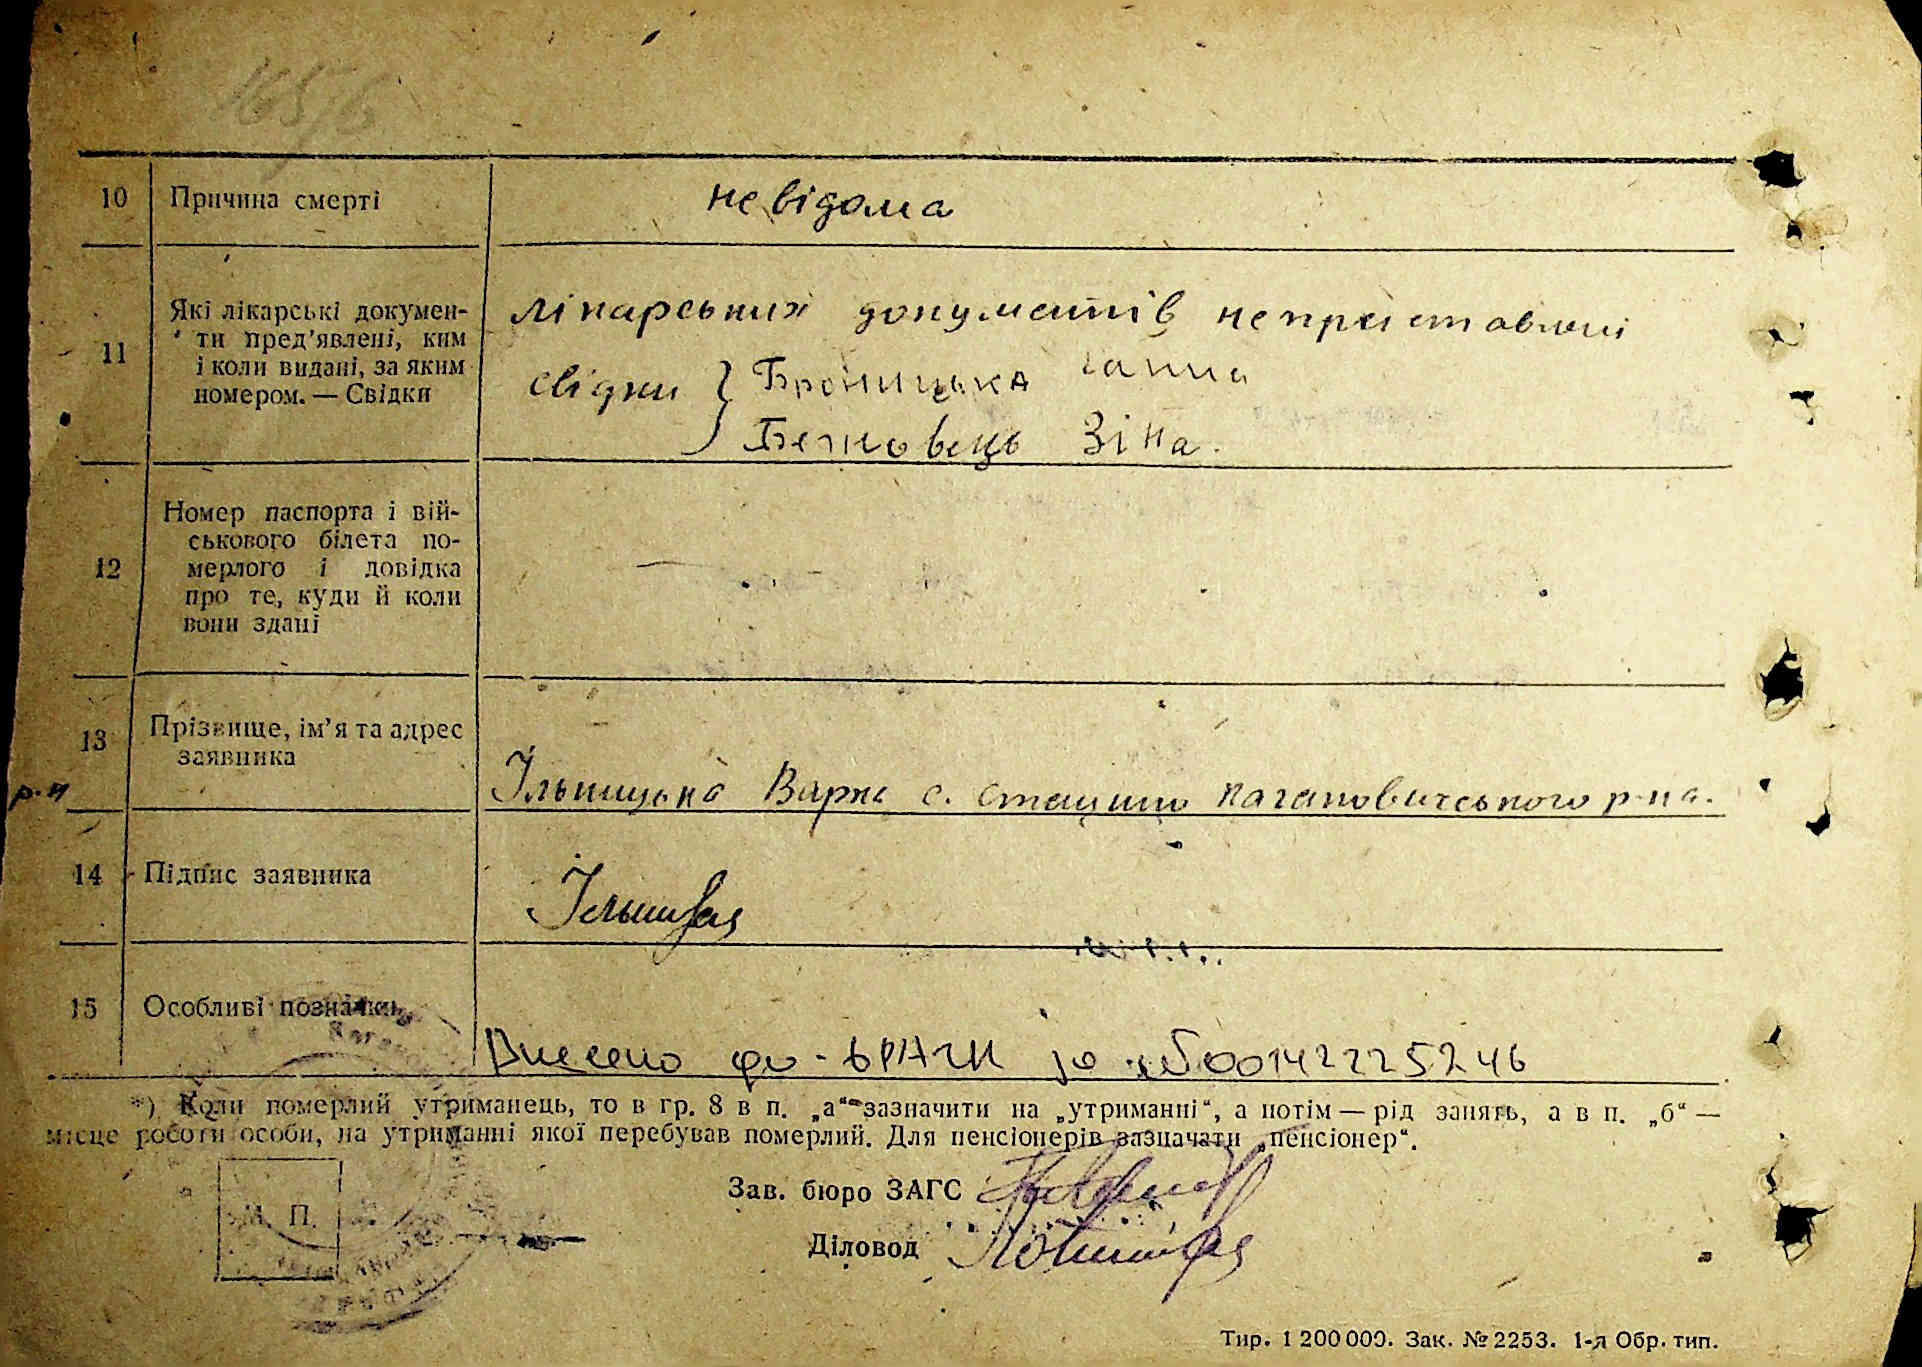 165/6
10 Причина смерті невідома
11 Які лікарські докумен-
ти пред’явлені, ким
і коли видані, за яким
номером. — Свідки
лікарських документів не
свідки } Броницька Ганна
Зіна.
12 Номер паспорта і вій-
ськового білета по-
мерлого і довідка
про те, куди й коли
вони здані
—
13 Прізвище, ім’я та адрес
заявника
р-н
Ільницька Варка с. Стецино Кагановичського р-на.
14 Підпис заявника
15 Особливі позначки
Внесено до ДРАЦС за №00142225246
*) Коли померлий утриманець, то в гр. 8 в п. „а“ зазначити на „утриманні“, а потім — рід занять, а в п. „б“ —
місце роботи особи, на утриманні якої перебував померлий. Для пенсіонерів зазначати „пенсіонер“.
Зав. бюро ЗАГС
М. П.
Діловод
Тир. 1 200 000. Зак. № 2253. 1-я Обр. тип.